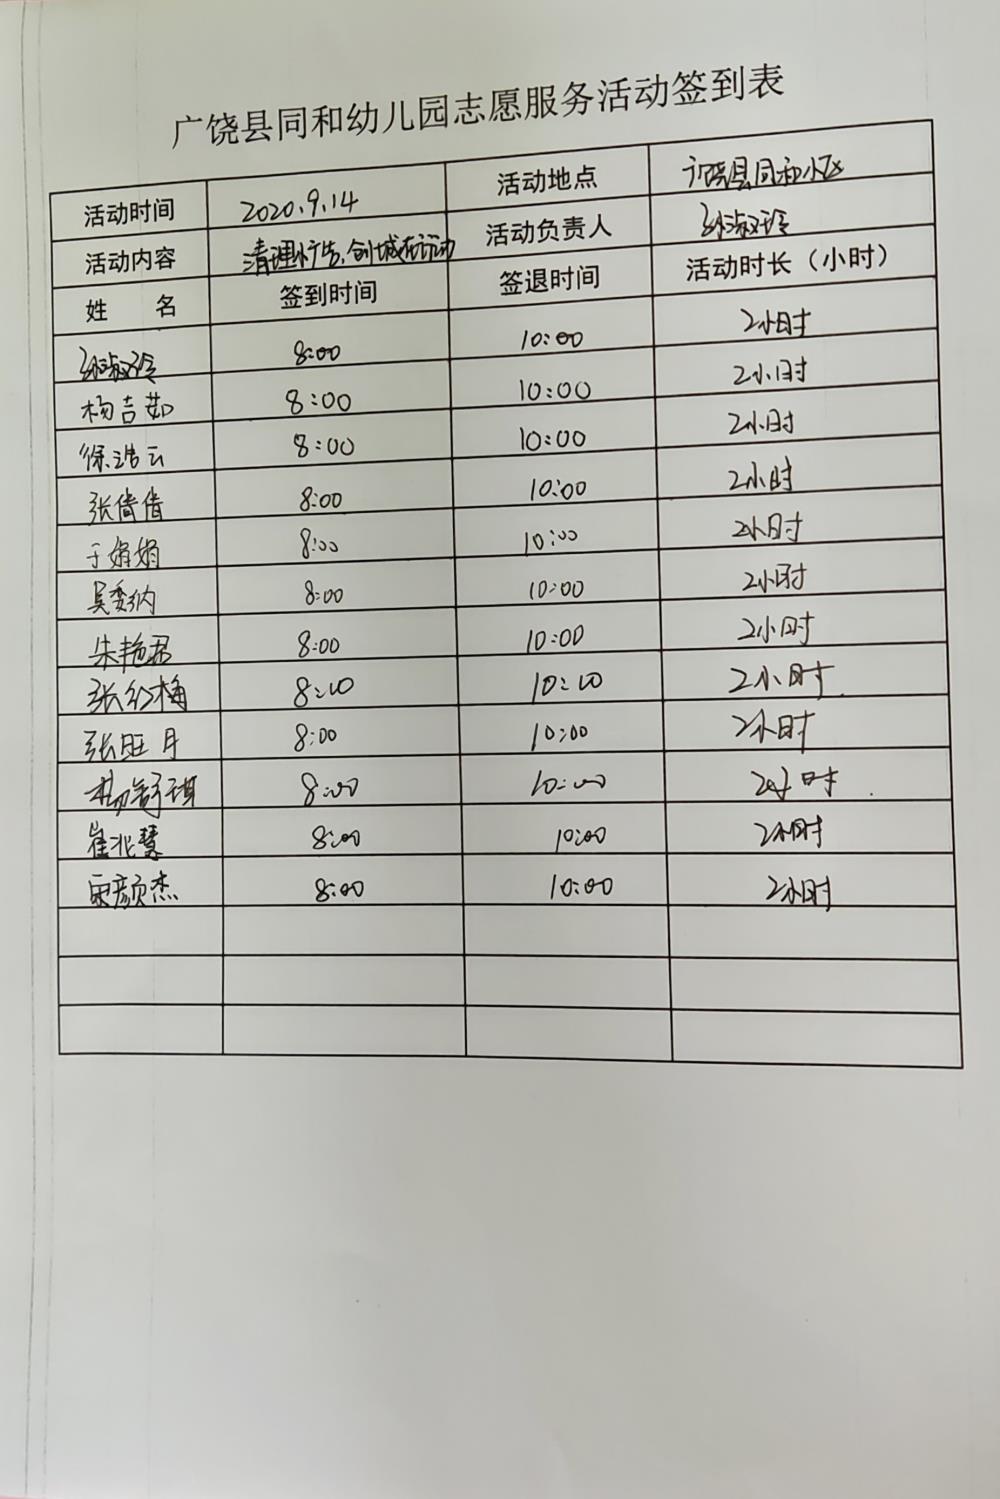 广饶县同和幼儿园志愿服务活动签到表
活动时间 2020.9.14 活动地点 广饶县同和小区
活动内容 清理小广告,创城在行动 活动负责人 孙淑玲
姓 名 签到时间 签退时间 活动时长（小时）
孙淑玲 8:00 10:00 2小时
杨吉茹 8:00 10:00 2小时
徐浩云 8:00 10:00 2小时
张倩倩 8:00 10:00 2小时
于娟娟 8:00 10:00 2小时
吴委纳 8:00 10:00 2小时
朱艳君 8:00 10:00 2小时
张红梅 8:00 10:00 2小时
张旺月 8:00 10:00 2小时
杨舒琪 8:00 10:00 2小时
崔兆慧 8:00 10:00 2小时
颜杰 8:00 10:00 2小时